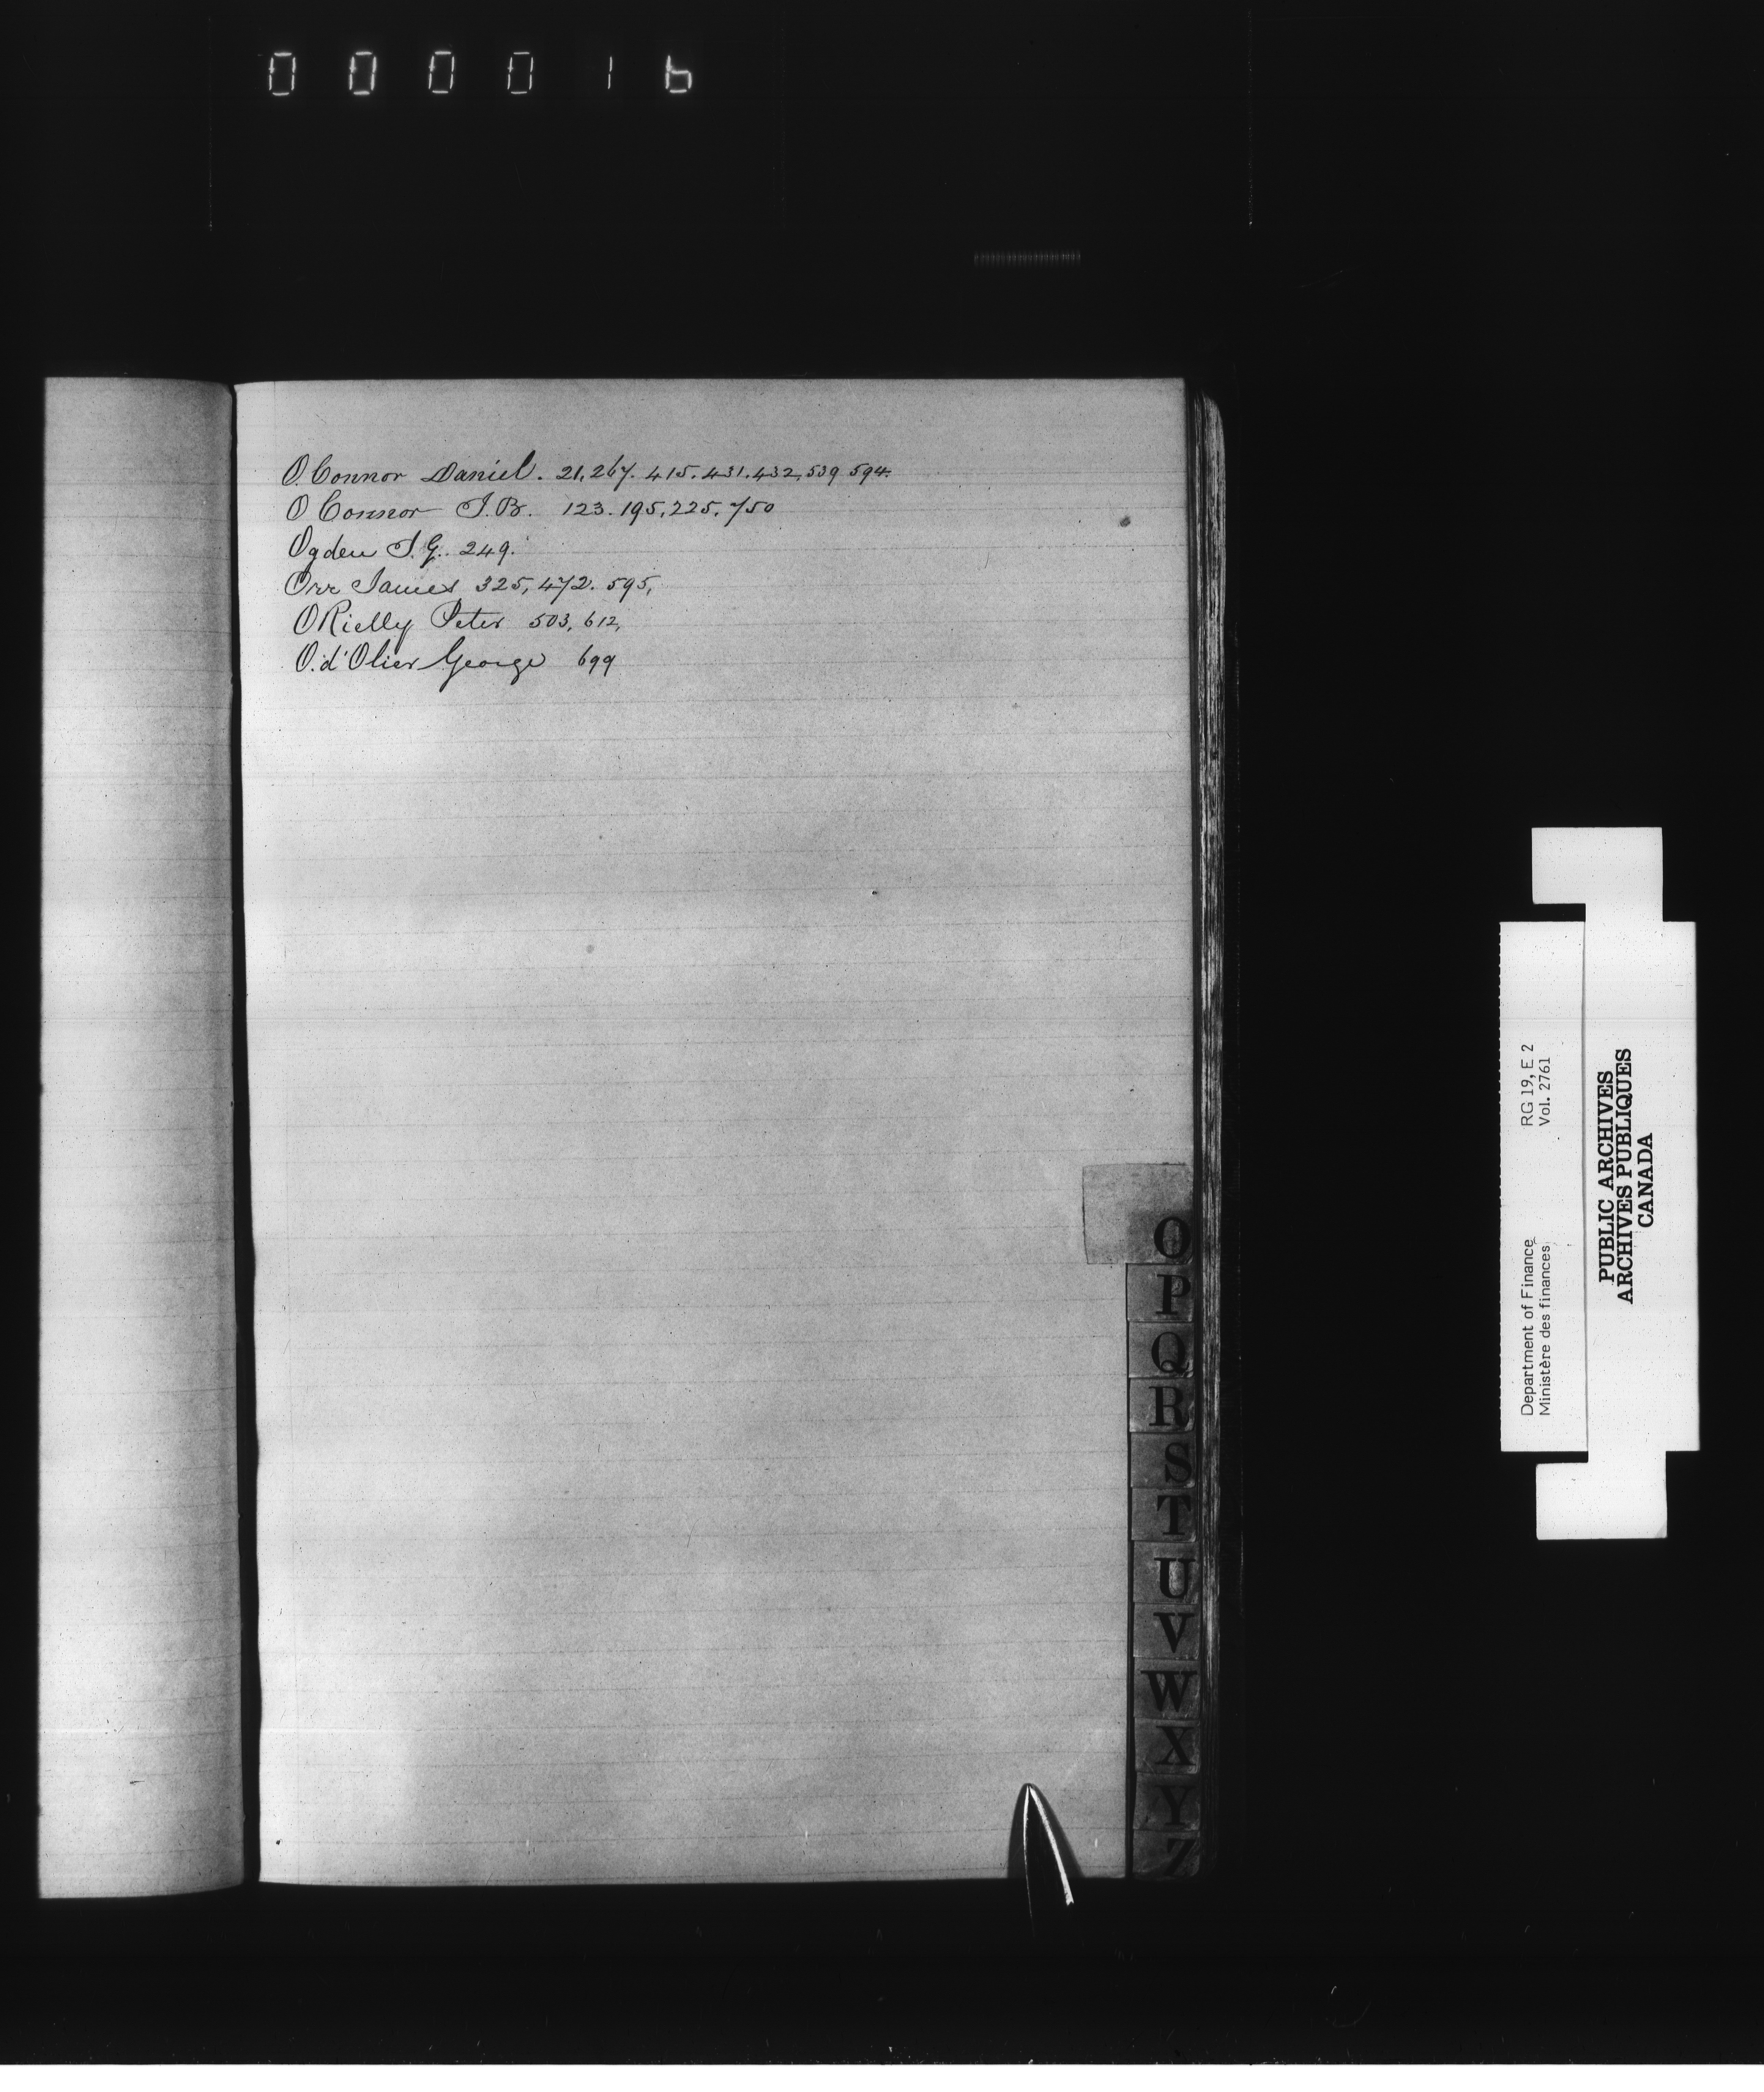 000016
O'Connor Daniel. 21, 267. 415. 431. 432, 539 594.
O Connor J. B. 123. 195, 225, 750
Ogden I. G. 249.
Orr James 325, 472. 595,
O Rielly Peter 503, 612,
O. d'Olier George 699
O
P
Q
R
S
T
U
V
W
X
Y
Z
Department of Finance RG 19, E 2
Ministère des finances Vol. 2761
PUBLIC ARCHIVES
ARCHIVES PUBLIQUES
CANADA